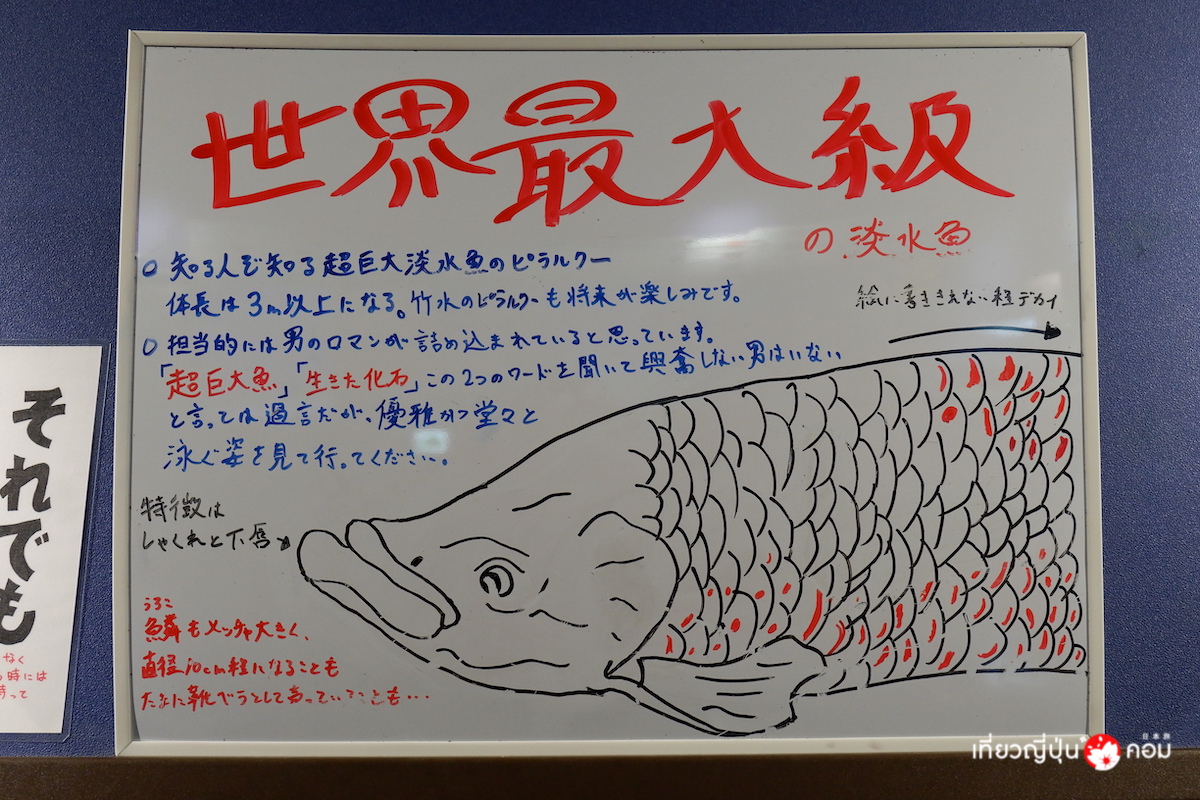 世界最大級
の淡水魚
○ 知る人ぞ知る超巨大淡水魚のピラルクー
体長は3m以上になる。竹水のピラルクーも将来が楽しみです。
絵に書ききれない程デカイ
○ 担当的には男のロマンが詰め込まれていると思っています。
「超巨大魚」「生きた化石」この2つのワードを聞いて興奮しない男はいない
と言っては過言だが、優雅かつ堂々と
泳ぐ姿を見て行ってください。
特徴は
しゃくれと下唇
うろこ
鱗もメッチャ大きく、
直径10cm程になることも
たまに靴べらとして売っていることも・・・
それでも
なく
時には
持って
เที่ยวญี่ปุ่น คอม
日本旅